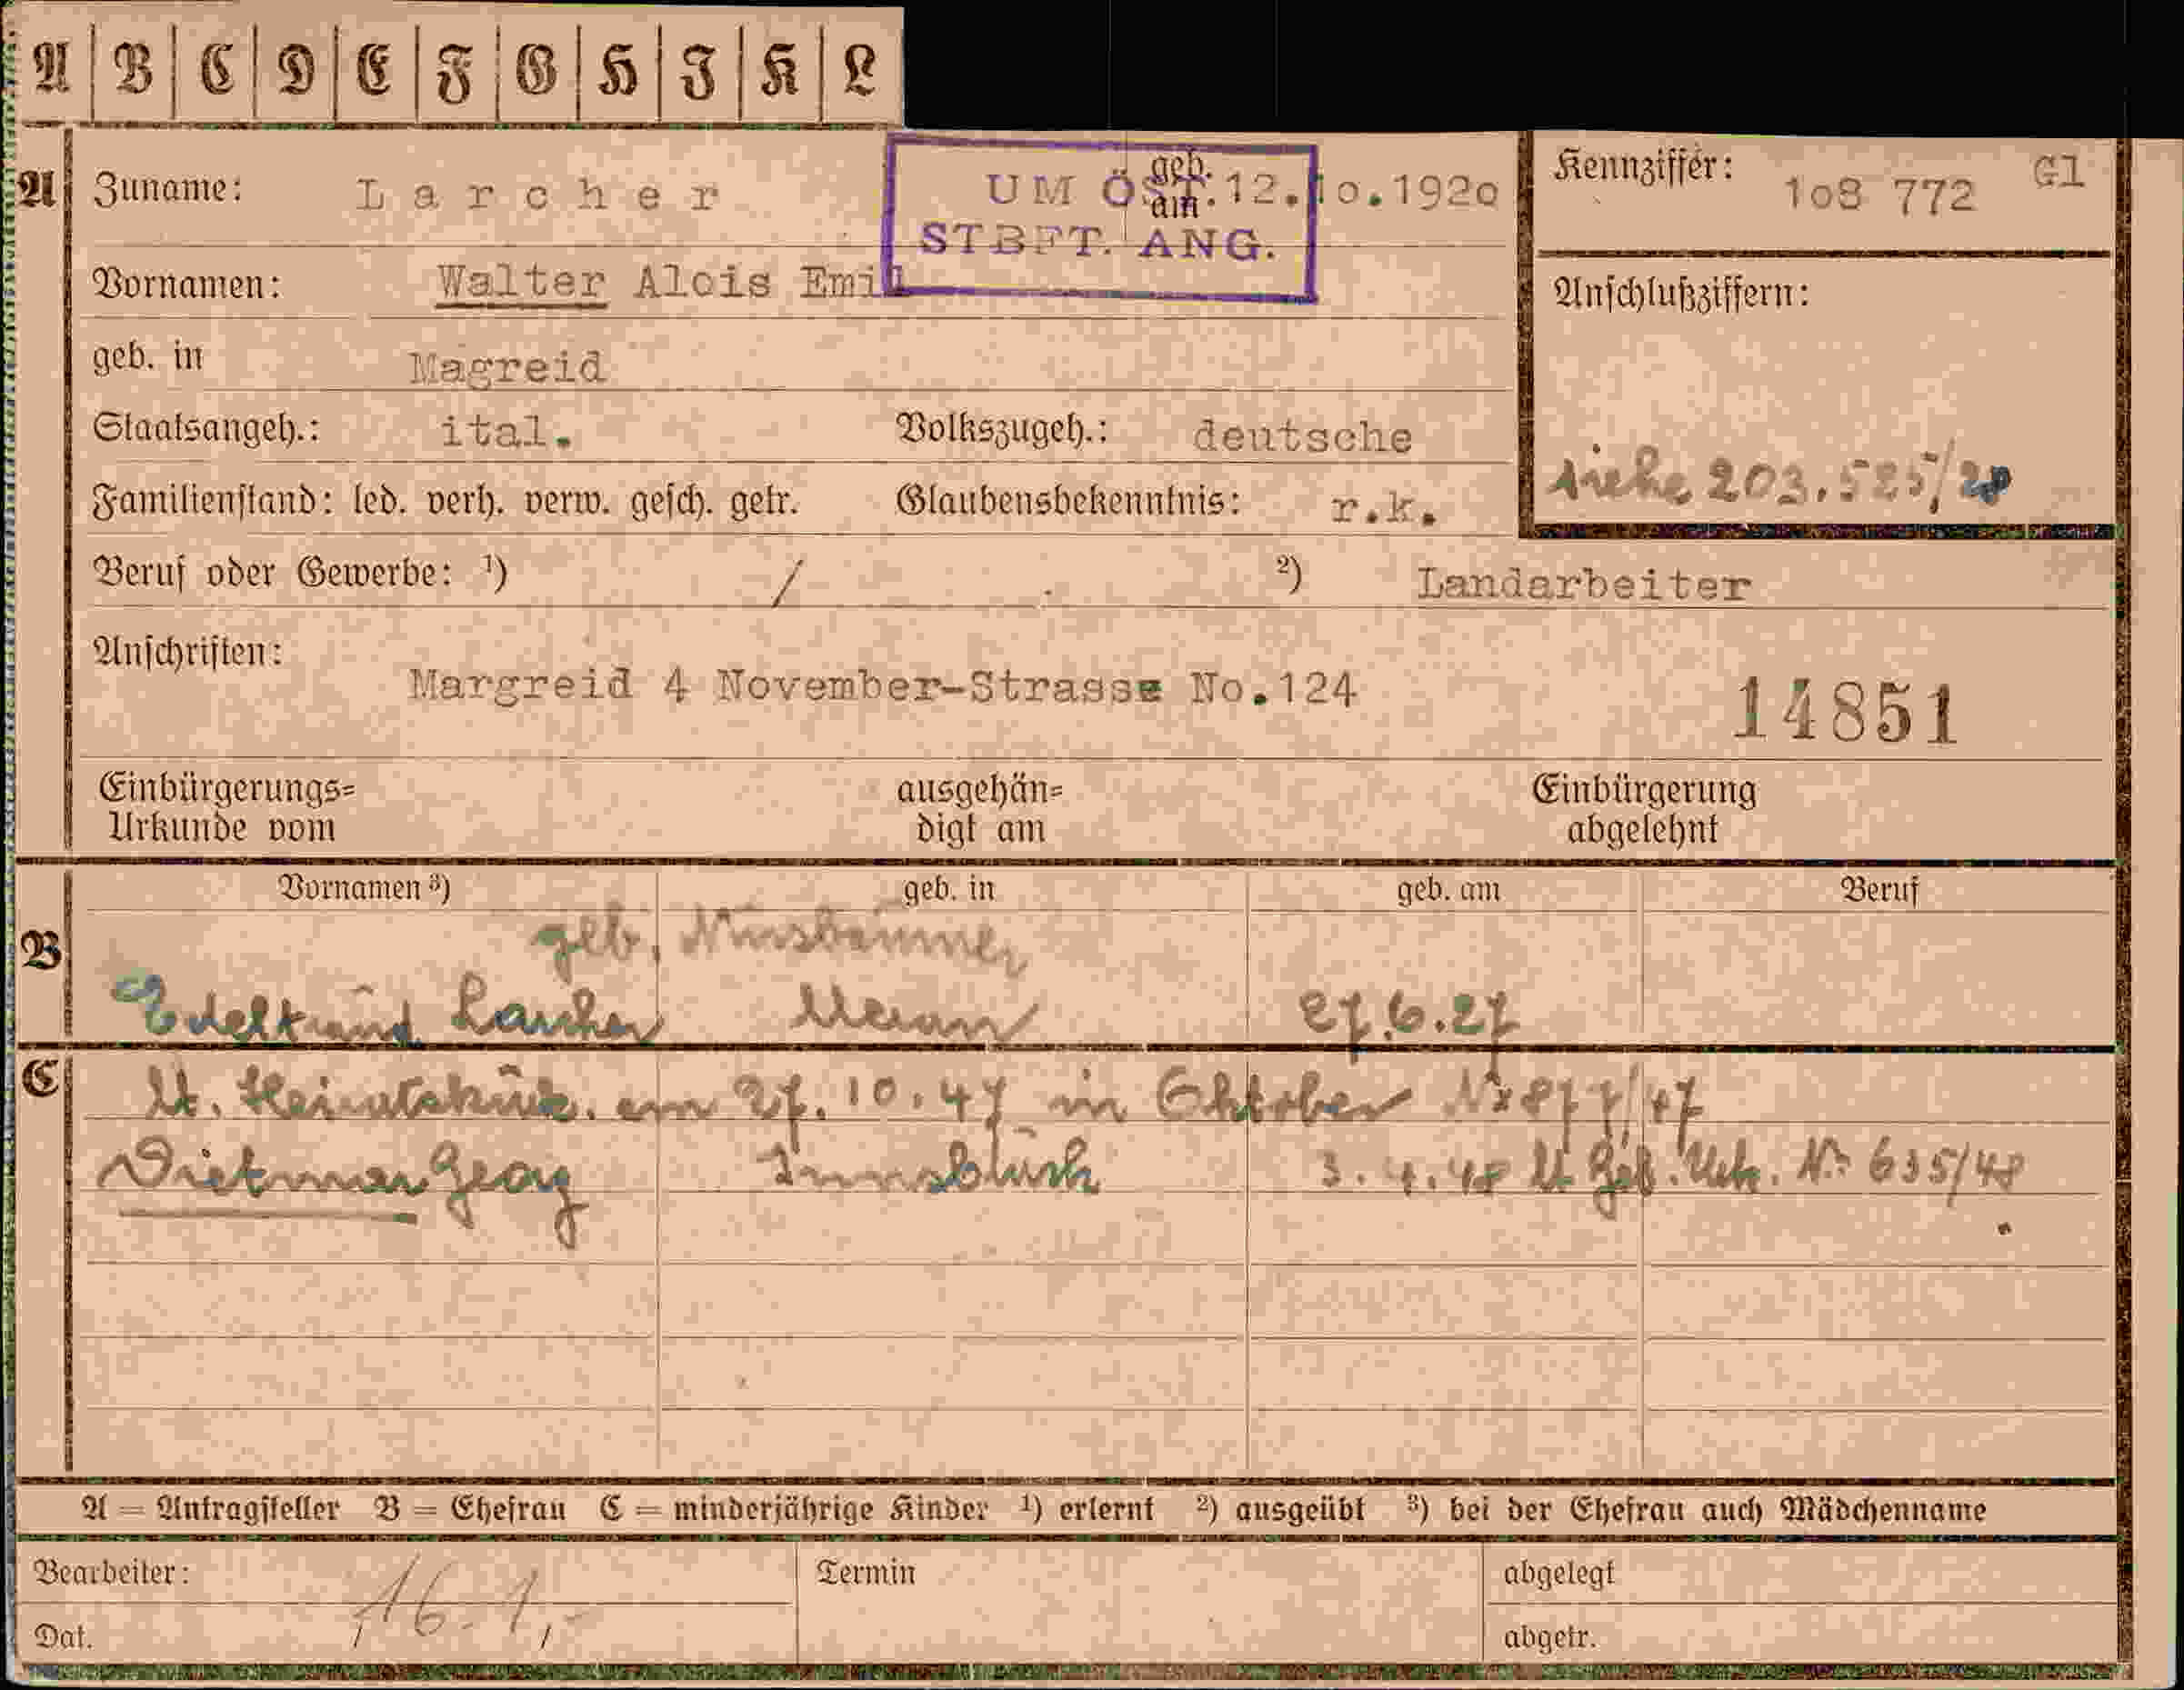 A | B | C | D | E | F | G | H | J | K | L
A Zuname: Larcher geb. am 12.10.1920
UM ÖST.
STBFT. ANG.
Kennziffer: 108 772 Gl
Vornamen: Walter Alois Emil
Anschlußziffern:
geb. in Magreid
Staatsangeh.: ital. Volkszugeh.: deutsche
siehe 203.525/28
Familienstand: led. verh. verw. gesch. getr. Glaubensbekenntnis: r.k.
Beruf oder Gewerbe: ¹) / ²) Landarbeiter
Anschriften:
Margreid 4 November-Strasse No.124
14851
Einbürgerungs= ausgehän= Einbürgerung
Urkunde vom digt am abgelehnt
Vornamen ³) geb. in geb. am Beruf
B geb. Nussbaumer
Edeltraud Larcher Meran 27.6.27
C lt. Heiratsurk. am 27.10.47 in Nr 877/47
Dietmar Georg Innsbruck 3.4.48 lt. Geb. Urk. Nr. 635/48
A = Antragsteller B = Ehefrau C = minderjährige Kinder ¹) erlernt ²) ausgeübt ³) bei der Ehefrau auch Mädchenname
Bearbeiter: Termin abgelegt
16.1,-
Dat. abgetr.